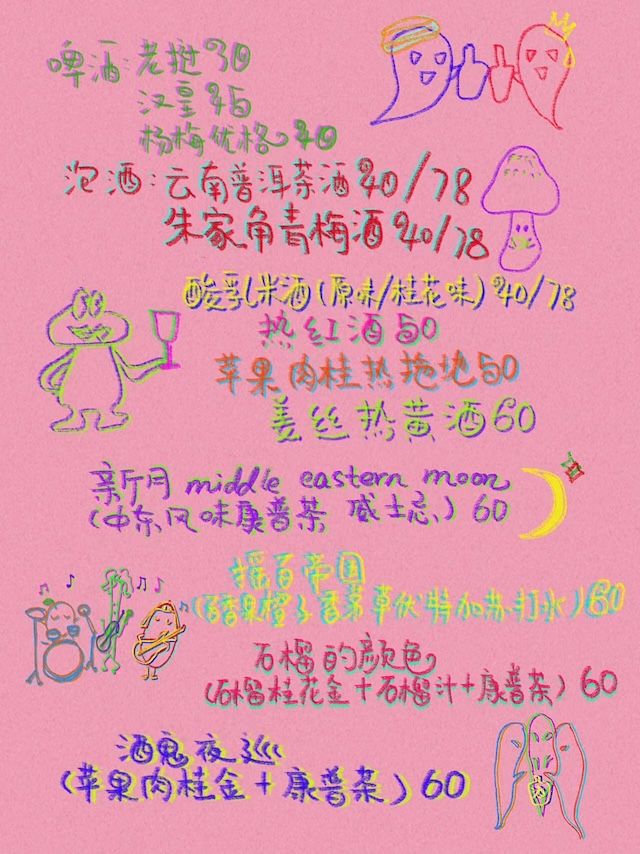 啤酒:老挝30
汉皇45
杨梅优格40
泡酒:云南普洱茶酒40/78
朱家角青梅酒40/78
酸乳米酒(原味/桂花味)40/78
热红酒50
苹果肉桂热拖地50
姜丝热黄酒60
新月 middle eastern moon
(中东风味康普茶 威士忌)60
摇百帝国
(百香果橙子香茅草伏特加苏打水)60
石榴的颜色
(石榴桂花金+石榴汁+康普茶)60
酒鬼夜巡
(苹果肉桂金+康普茶)60